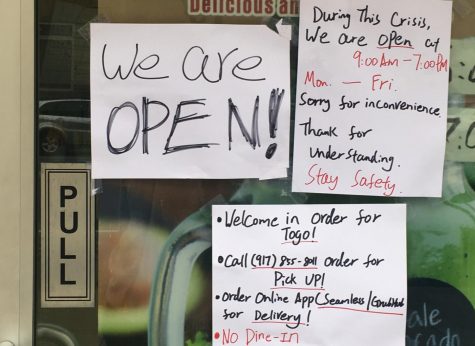 Delicious an
We are
OPEN!
During This Crisis,
We are open at
9:00Am - 7:00PM
Mon. — Fri.
Sorry for inconvenience.
Thank for
understanding.
Stay Safety.
PULL
• Welcome in order for
Togo!
• Call (917) 855-8011 order for
Pick UP!
• Order Online App (Seamless/GrubHub
for Delivery!
• No Dine-In
ale
ocado